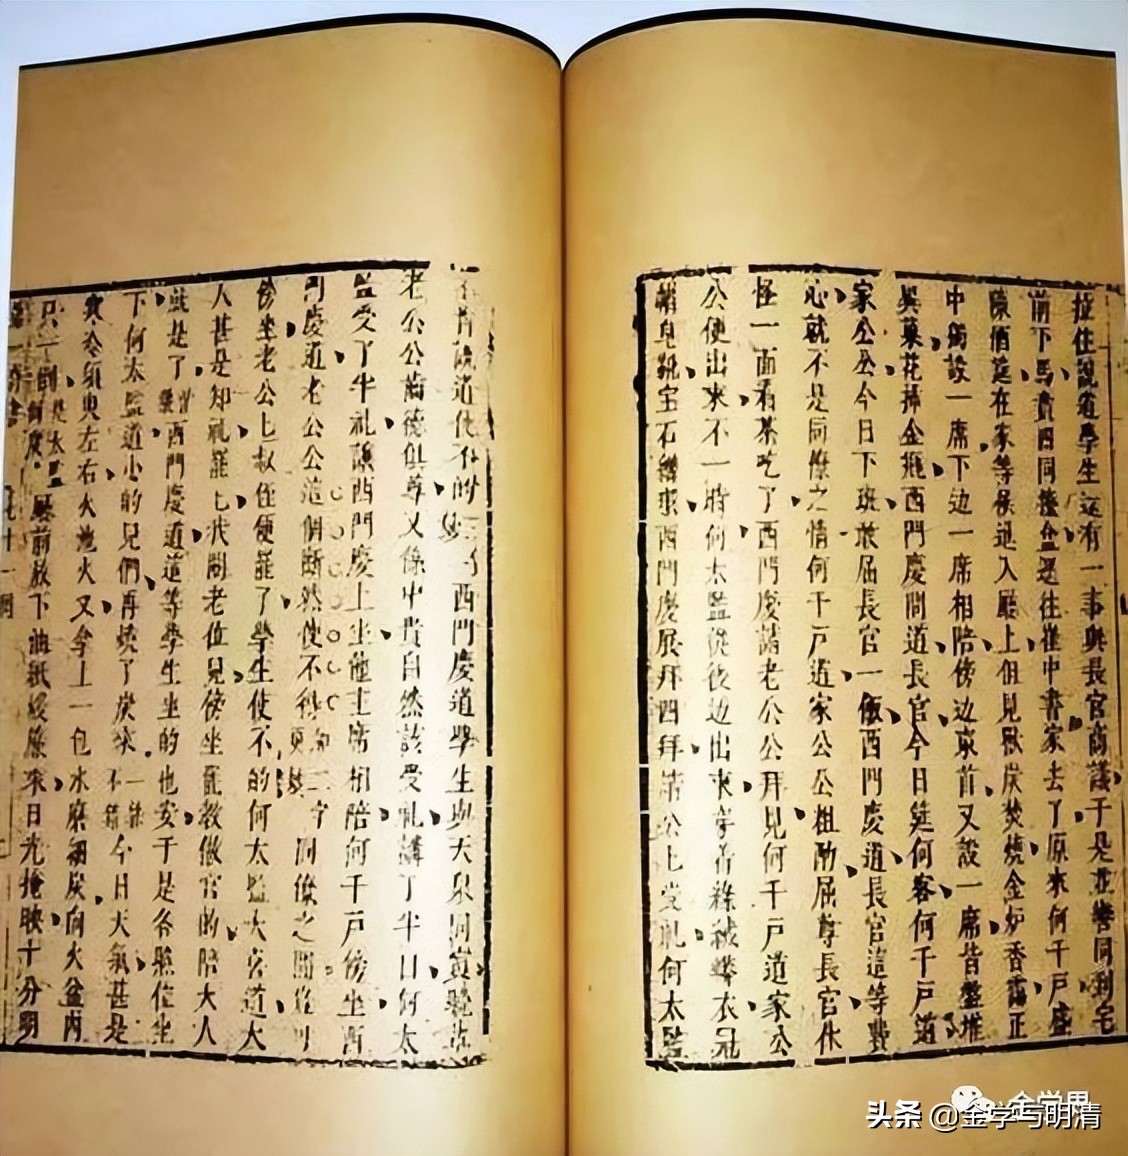 拉住說道學生還有一事與長官商議于是並轡同到宅
前下馬賁四同擡盒逕往崔中書家去了原來何千戶盛
陳酒筵在家等候進入廳上但見獸炭焚燒金炉香靄正
中獨設一席下边一席相陪傍边東首又設一席皆盤堆
異菓花揷金瓶西門慶問道長官今日筵何客何千戶道
家公公今日下班敢屈長官一飯西門慶道長官這等費
心就不是同僚之情何千戶道家公公粗酌屈尊長官休
怪一面看茶吃了西門慶請老公公拜見何千戶道家公
公便出來不一時何太監從後边出來穿着綠絨蟒衣冠
帽皂靴宝石絛环西門慶展拜四拜請公公受礼何太監
不肯說道使不的西門慶道學生與天泉同寅晚輩
老公公齒德俱尊又係中貴自然該受礼講了半日何太
監受了半礼讓西門慶上坐他主席相陪何千戶傍坐西
門慶道老公公這個断然使不得同僚之間豈可
傍坐老公公叔侄便罷了學生使不的何太監大喜道大
人甚是知礼罷罷我閣老位兒傍坐罷教做官的陪大人
就是了西門慶道這等學生坐的也安于是各照位坐
下何太監道小的兒們再燒了炭來今日天氣甚是
寒冷須臾左右火池火叉拿上一包水磨細炭向火盆内
只一倒廳前放下油紙緩簾來日光掩映十分明
頭条 @金学与明清
金学界